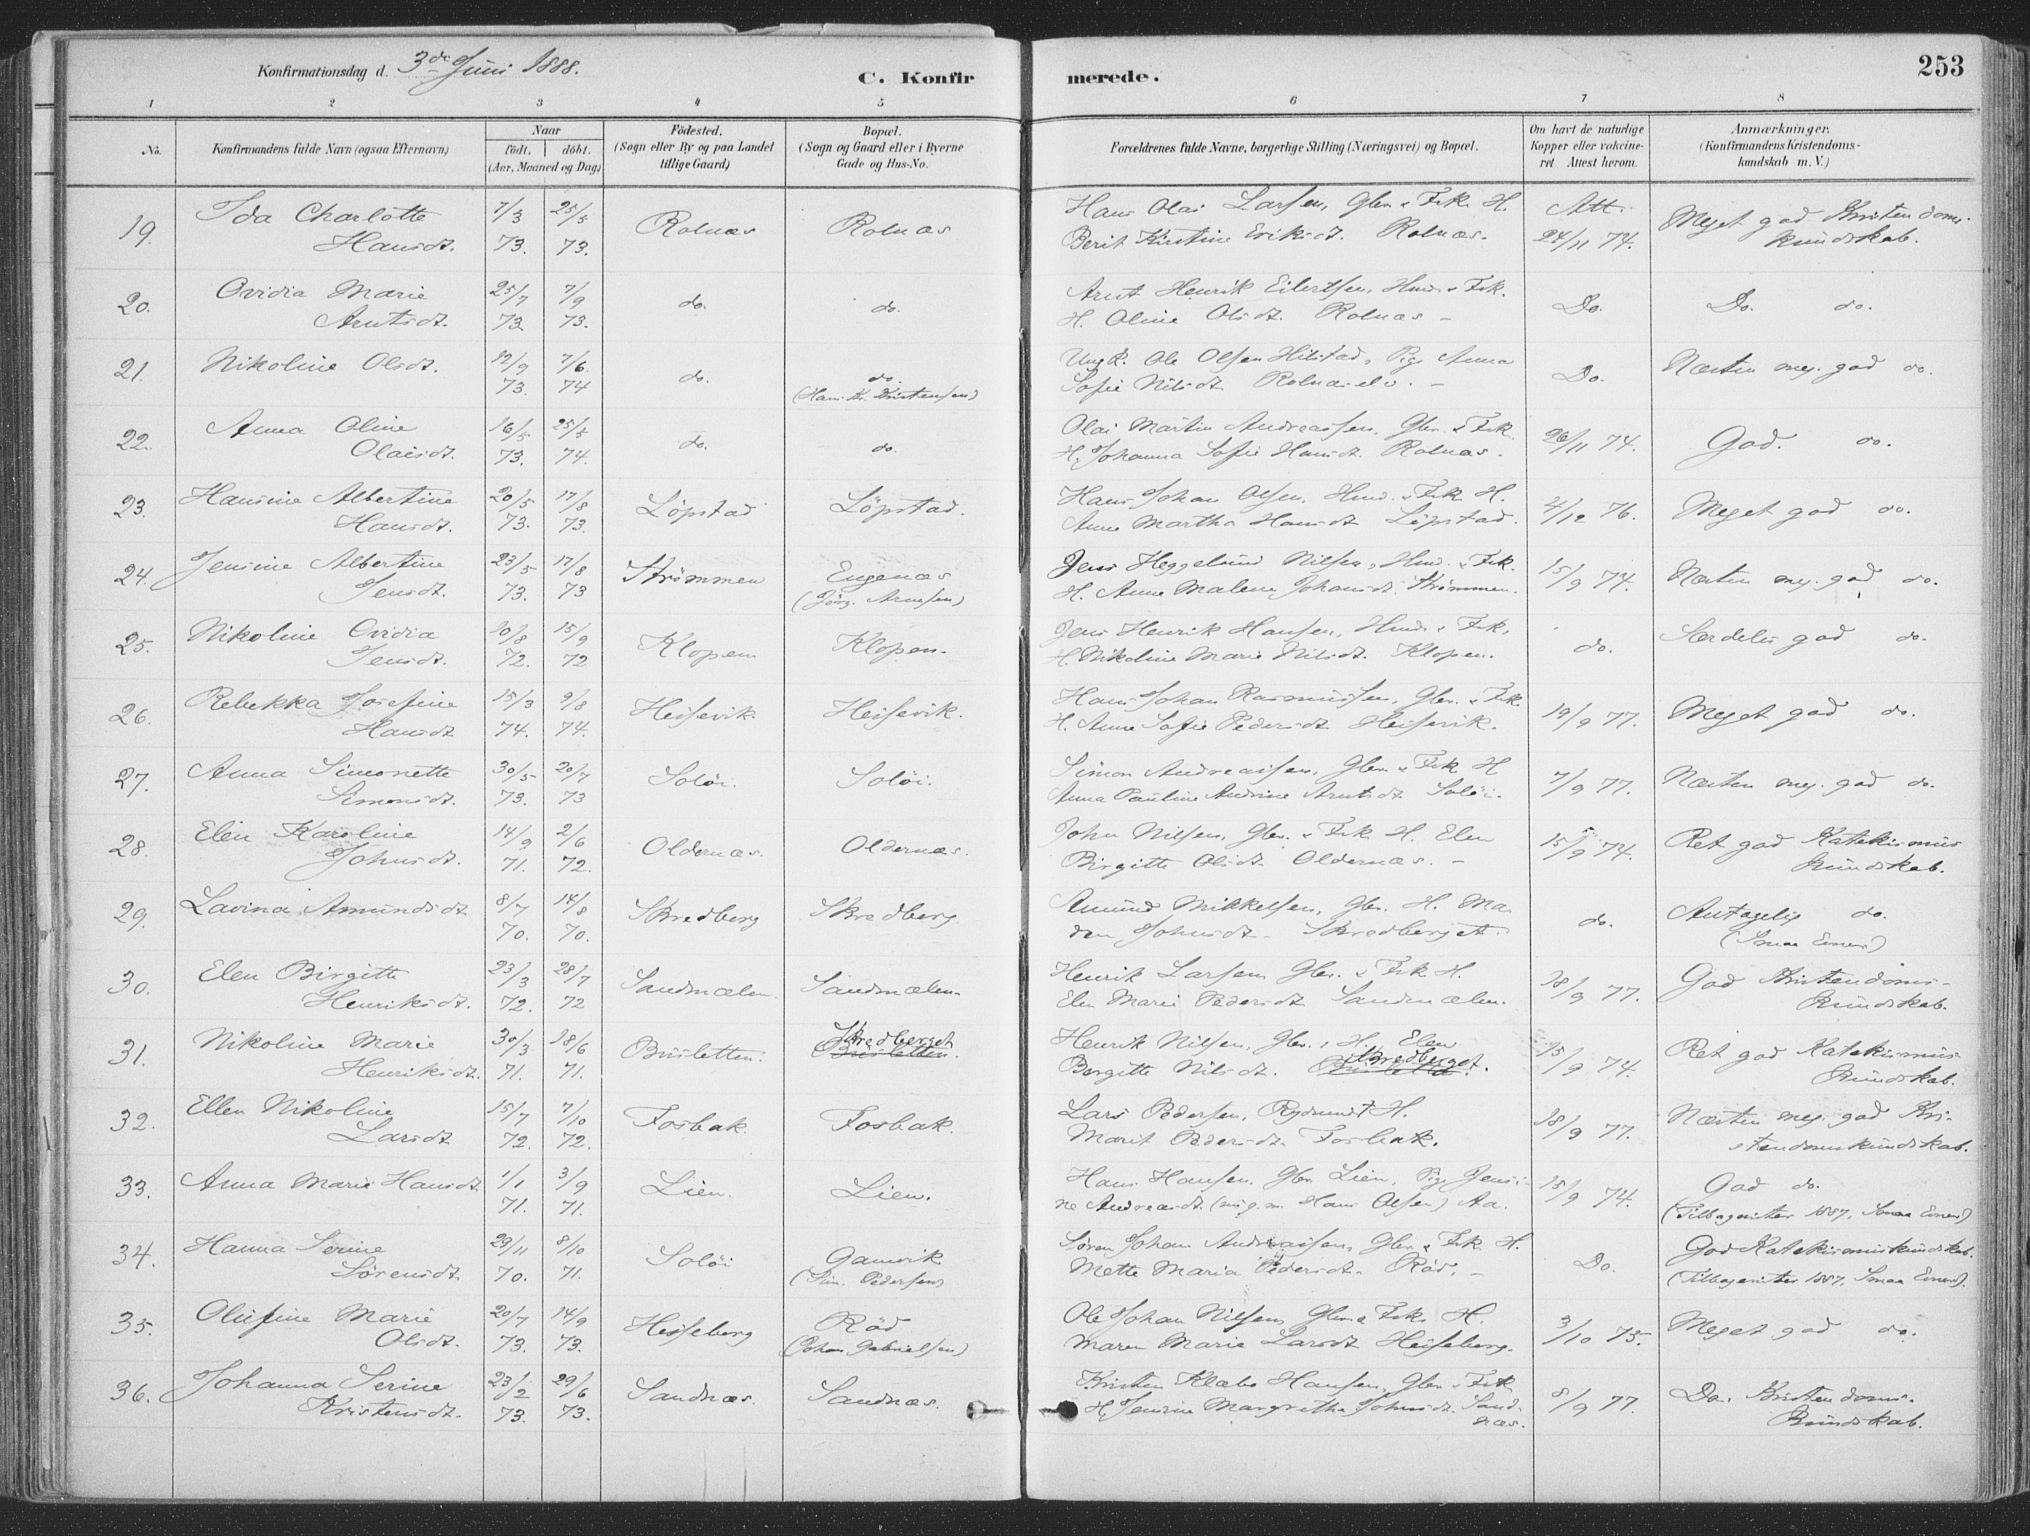 Konfirmationsdag d. 3de Juni 1888.
C. Konfirmerede.
253
1 2 3 4 5 6 7 8
No.
Konfirmandens fulde Navn (ogsaa Efternavn)
Naar
födt. döbt.
(Aar, Maaned og Dag)
Födested.
(Sogn eller By og paa Landet
tillige Gaard)
Bopæl.
(Sogn og Gaard eller i Byerne
Gade og Hus-No.
Forældrenes fulde Navne, borgerlige Stilling (Næringsvei) og Bopæl.
Om havt de naturlige
Kopper eller vakcine-
ret Attest herom.
Anmærkninger.
(Konfirmandens Kristendoms-
kundskab m. V.)
19. Ida Charlotte 7/3 25/5 Rolnæs Rolnæs Hans Olai Larsen, Gbr. & Fsk. H. Att. Meget god Kristendoms-
Hansdt. 73. 73. Berit Kirstine Eriksdt. Rolnæs. 24/11 74. kundskab.
20. Ovidia Marie 25/7 7/9 do. do. Arnt Henrik Eilertsen, Hmd. & Fsk. Do. Do. do.
Arntsdt. 73 73. H. Oline Olsdt. Rolnæs –
21. Nikoline Olsdt. 12/9 7/6. do. do. Ungk. Ole Olsen Hilstad, Pig. Anna Do. Næsten meg. god do.
73. 74 (Hans Kr. Kristensen) Sofie Nilsdt.
22. Anna Oline 16/5 25/5 do. do. Olai Martin Andreassen, Gbr. & Fsk. 26/11 74. God. do.
Olaisdt. 73. 74. H. Johanna Sofie Hansdt. Rolnæs.
23. Hansine Albertine 20/5 17/8 Löpstad Löpstad. Hans Johan Olsen, Hmd. & Fsk. H. 4/12 76. Meget god do.
Hansdt. 73. 73. Anne Martha Hansdt Löpstad.
24. Jensine Albertine 23/5 17/8 Strömmen Eugenæs Jens Heggelund Nilsen, Hmd. & Fsk. 15/9 74. Næsten meg. god do.
Jensdt. 73. 73 (Jörg. Arnesen) H. Anne Malene Johansdt. Strömmen.
25. Nikoline Ovidia 10/8 15/9 Klopen Klopen. Jens Henrik Hansen, Hmd. & Fsk. do. Særdeles god do.
Jensdt. 72. 72 H. Nikoline Marie Nilsdt. Klopen.
26. Rebekka Josefine 15/3 9/8 Heissevik Heissevik. Hans Johan Rasmussen, Gbr. & Fsk. 19/9 77. Meget god do.
Hansdt 74. 74. H. Anne Sofie Pedersdt Heissevik.
27. Anna Simonette 30/5 20/7 Solöi. Solöi. Simon Andreassen, Gbr. & Fsk. H 7/9 77. Næsten meg. god do.
Simonsdt. 73. 73 Anna Pauline Andrine Arntsdt Solöi.
28. Elen Karoline 14/9 2/6 Oldernæs. Oldernæs. John Nilsen, Gbr. & Fsk. H. Elen 15/9 74. Ret god Katekismus
Johnsdt. 71. 72. Birgitte Olsdt Oldernæs. – kundskab.
29. Lavina Amundsdt 8/7 14/8 Skredberg Skredberg Amund Mikkelsen, Gbr. H. Ma- do. Antagelig do.
70. 70. ren Johnsdt. Skredberget. (Smaa Evner)
30. Elen Birgitte 23/3 28/7 Sandmælen. Sandmælen. Henrik Larsen, Gbr. & Fsk. H. 18/9 77. God Kristendoms-
Henriksdt. 72. 72 Elen Marie Pedersdt Sandmælen. kundskab.
31. Nikoline Marie 30/3 18/6 Busletten. Skredberget Henrik Nilsen, Gbr., H. Elen 15/9 74. Ret god Katekismus
Henriksdt. 71. 71. Busletten. Birgitte Nilsdt. Skredberget. kundskab.
32. Ellen Nikoline 15/7 7/10 Fosbak. Fosbak. Lars Pedersen, Rydnmd. H. 18/9 77. Næsten meg. god Kri-
Larsdt 72. 72. Marit Pedersdt Fosbak. stendomskundskab.
33. Anna Marie Hansdt. 1/1 3/9 Lien. Lien. Hans Hansen, Gbr. Lien, Pig. Jensi- 15/9 74. God do.
71. 71. ne Andreasdt. (nu g. m. Hans Olsen) Aa. (Tilbagevist 1887, Smaa Evner)
34. Hanna Serine 29/11 8/10 Solöi Gamvik Sören Johan Andreassen, Gbr. & Fsk. H. Do. God Katekismuskundskab.
Sörensdt. 70. 71. (Sim. Pedersen) Mette Maria Pedersdt. Röd. – (Tilbagevist 1887, Smaa Evner).
35. Olufine Marie 20/7 14/9 Heisseberg Röd Ole Johan Nilsen, Gbr. & Fsk. H. 3/10 75. Meget god do.
Olsdt. 73. 73. (Johan Gabrielsen) Maren Marie Larsdt Heisseberg.
36. Johanna Serine 23/2 29/6 Sandnæs. Sandnæs. Kristen Klæbo Hansen, Gbr. & Fsk. 8/9 77. Do. Kristendoms-
Kristensdt. 73. 73. H. Jensine Margrethe Johnsdt. Sand- kundskab.
næs.